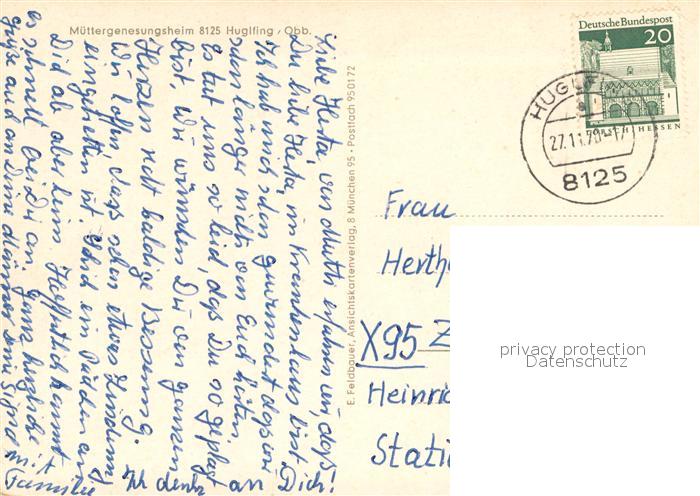 Müttergenesungsheim 8125 Huglfing / Obb.
Liebe Herta, von Mutti erfahren wir, dass
Du, liebe Herta, im Krankenhaus bist.
Ich hab mich schon gewundert dass wir
schon länger nichts von Euch hörten.
Es tut uns so leid, dass Du so geplagt
bist. Wir wünschen Dir von ganzem
Herzen recht baldige Besserung.
Wir hoffen dass schon etwas Linderung
eingetreten ist. Päckchen an
Dich ab aber beim. Hoffentlich kommt
es schnell bei Dir an. Ganz herzliche
Grüße auch an Deine Männer Sigrid
mit
Familie Ich denke an Dich!
E. Feldbauer, Ansichtskartenverlag, 8 München 95 · Postfach 950172
Deutsche Bundespost
20
LORSCH/HESSEN
HUGLF
27.11.70-17
8125
Frau
Herth
X95 Z
Heinric
Stati
privacy protection
Datenschutz